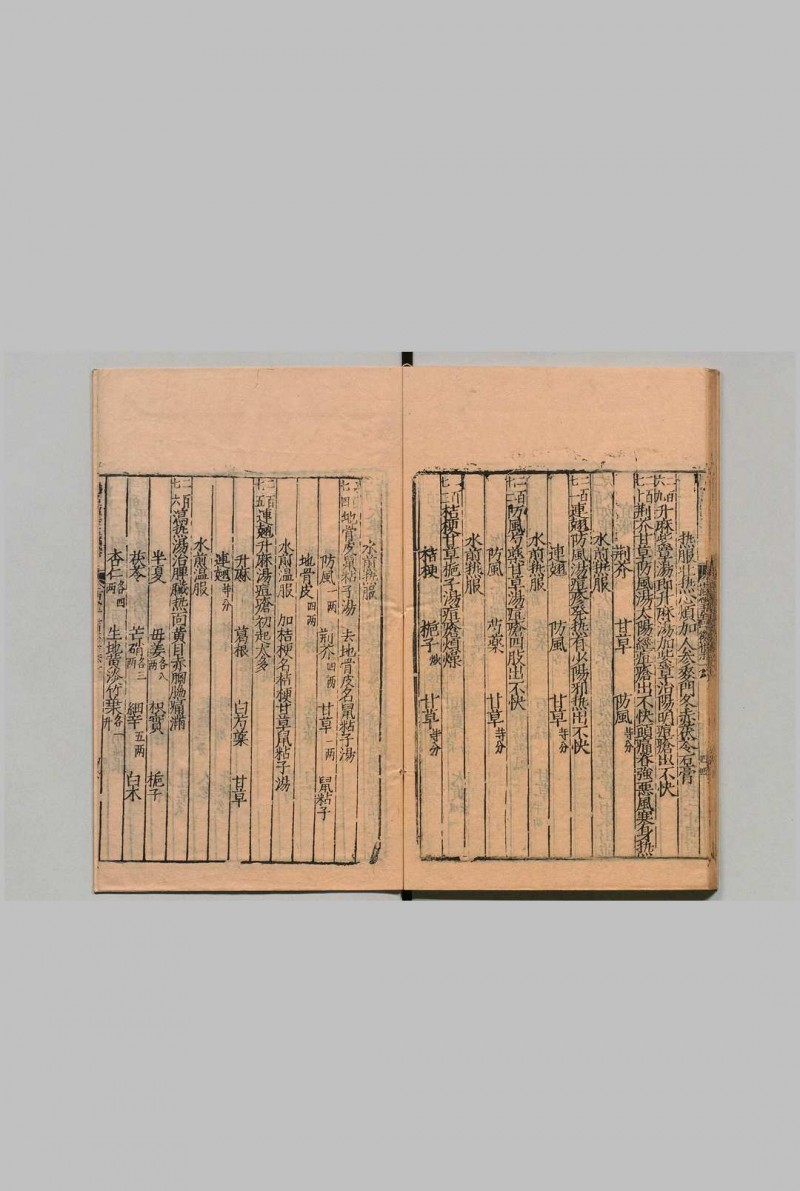 熱服壯熱心煩加人參麥門冬赤茯苓石膏
二百六十九加升麻紫草湯即升麻湯加紫草治陽明痘瘡出不快
二百七十荊芥甘草防風湯太陽經痘瘡出不快頭痛脊強惡風寒身熱
荊芥 甘草 防風等分
水煎熱服
二百七十一連翹防風湯痘瘡發熱有少陽邪熱出不快
連翹 防風 甘草等分
水煎熱服
二百七十二防風芍藥甘草湯痘瘡四肢出不快
防風 芍藥 甘草等分
水煎熱服
二百七十三桔梗甘草梔子湯痘瘡煩燥
桔梗 梔子炒 甘草等分
水煎熱服
二百七十四地骨皮鼠粘子湯 去地骨皮名鼠粘子湯
防風一兩 荊芥四兩 甘草一兩 鼠粘子
地骨皮四兩
水煎溫服 加桔梗名桔梗甘草鼠粘子湯
二百七十五連翹升麻湯痘瘡初起太多
升麻 葛根 白芍藥 甘草
連翹等分
水煎溫服
二百七十六瀉熱湯治脾臟熱面黃目赤胸脇痛滿
半夏 母姜各八兩 枳實 梔子
茯苓 芒硝各三兩 細辛五兩 白朮
杏仁各四兩 生地黃 淡竹葉各一升